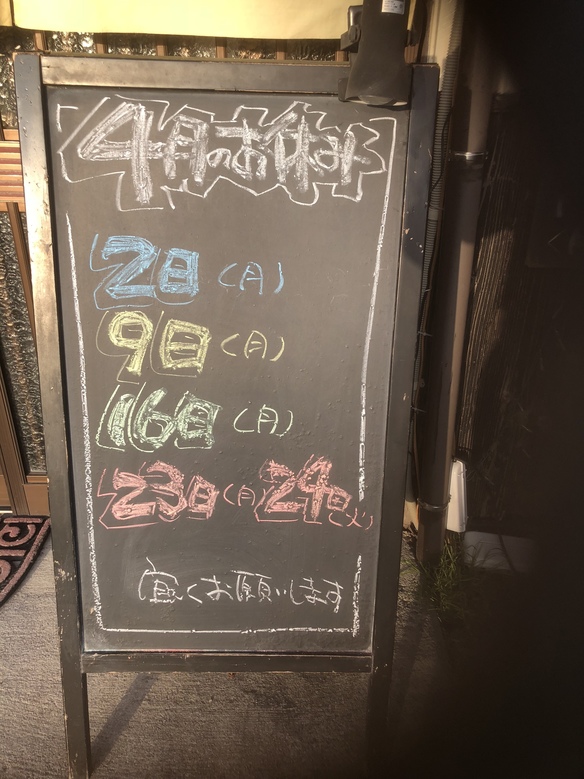 4月のお休み
2日（月）
9日（月）
16日（月）
23日（月）24日（火）
宜くお願いします